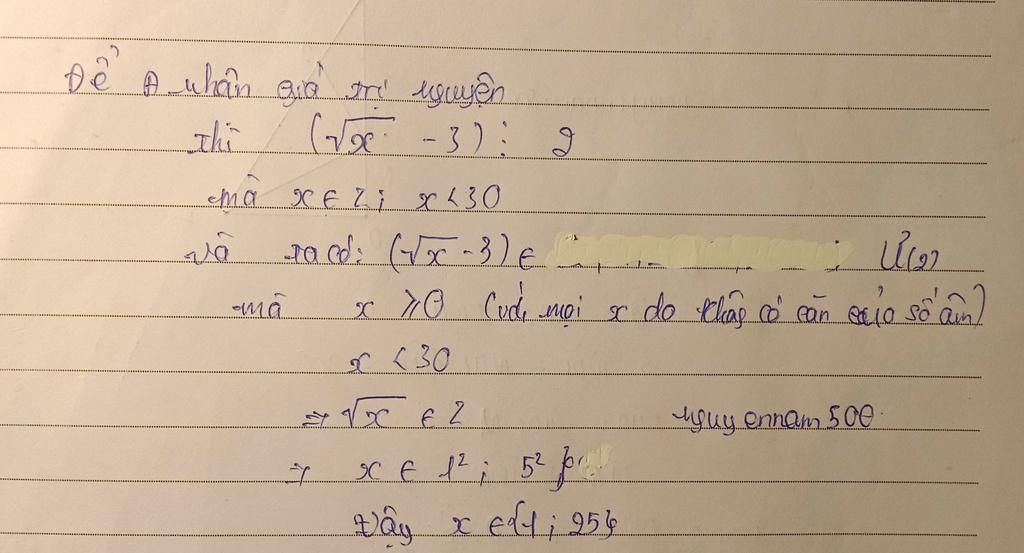 Để A nhận giá trị nguyên
thì (√x - 3) ⋮ 2
mà x ∈ Z; x < 30
và ta có: (√x - 3) ∈ Ư(2)
mà x ≥ 0 (với mọi x do không có căn của số âm)
x < 30
⇒ √x ∈ Z nguyennam500
⇒ x ∈ 1²; 5² }
Vậy x ∈ {1; 25}